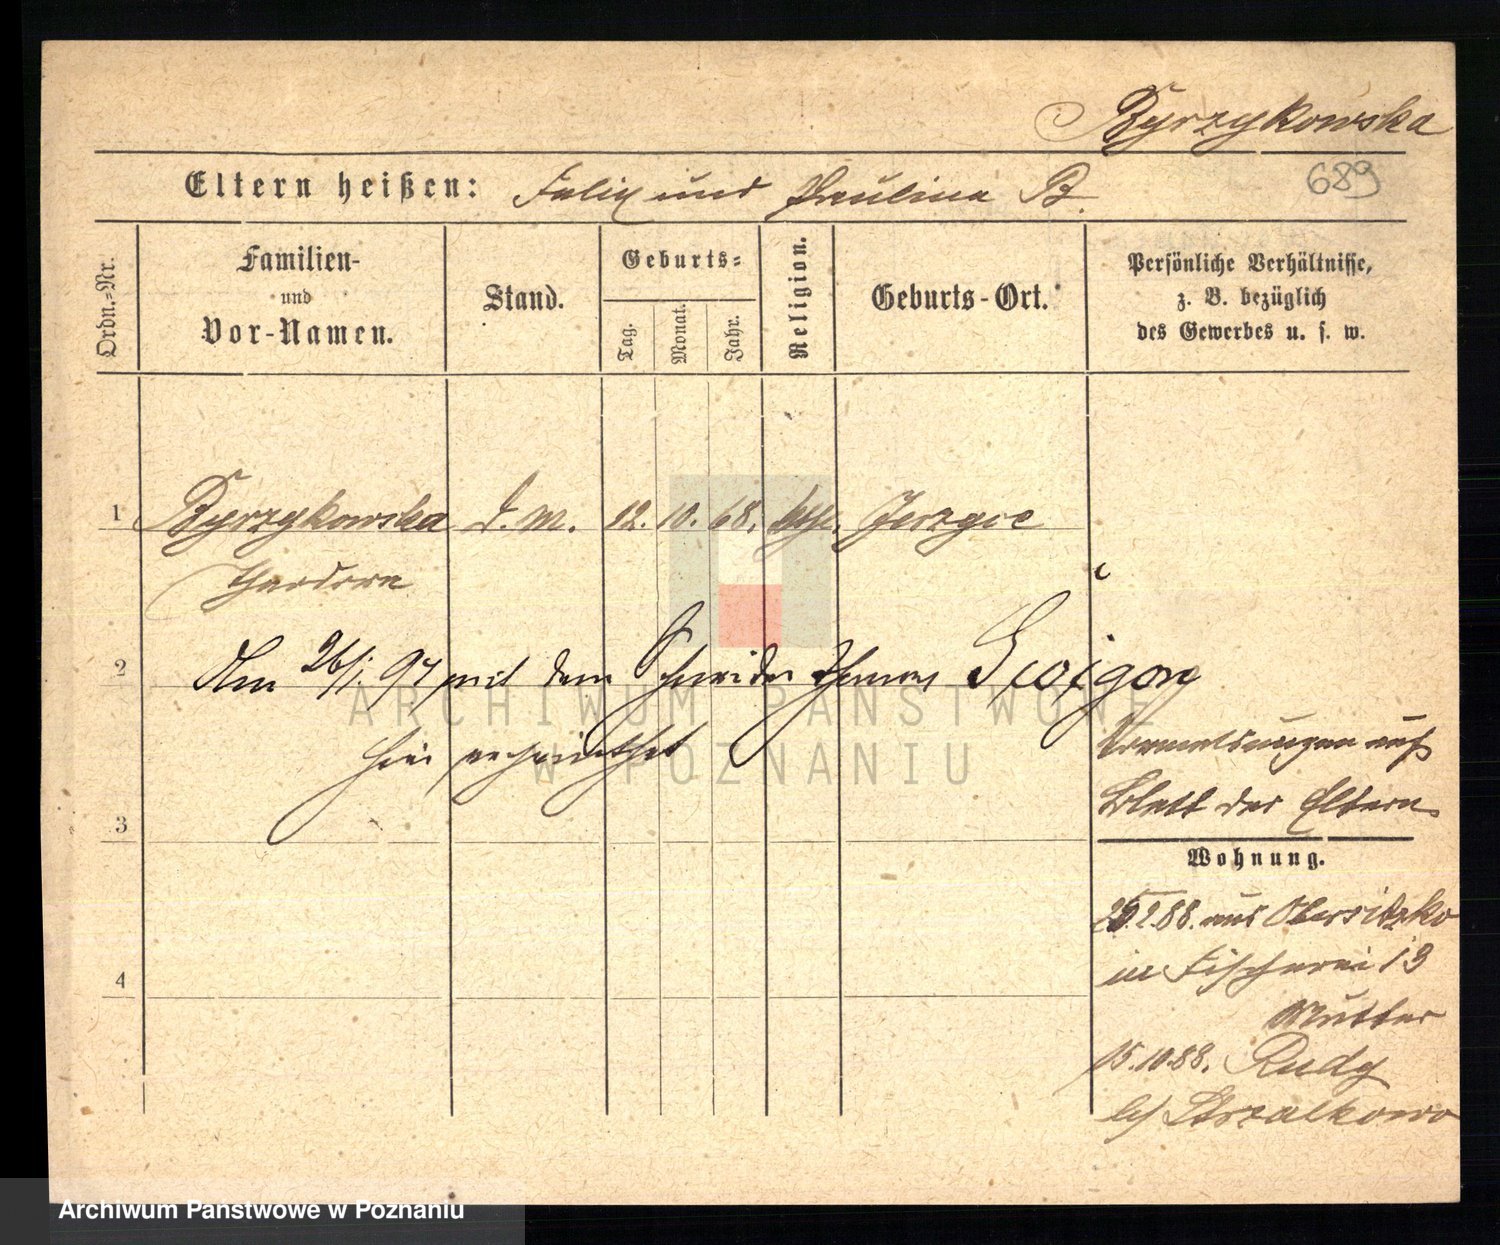 Byrzykowska
Eltern heißen: Felix und Paulina B.
689
Ordn.=Nr.
Familien-
und
Vor-Namen.
Stand.
Geburts=
Tag.
Monat.
Jahr.
Religion.
Geburts-Ort.
Persönliche Verhältnisse,
z. B. bezüglich
des Gewerbes u. s. w.
1 Byrzykowska d. M. 12. 10. 68. kth. Jerzyce
2 Am 26/1. 97 mit dem Schneider Thomas
hier verheirathet
Anmeldungen auf
Blatt der Eltern.
3
Wohnung.
2.88. aus Obersitzko
in Fischerei 13
4
Mutter
15.10.88. Rudy
b/ Strzalkowo
ARCHIWUM PAŃSTWOWE
W POZNANIU
Archiwum Państwowe w Poznaniu